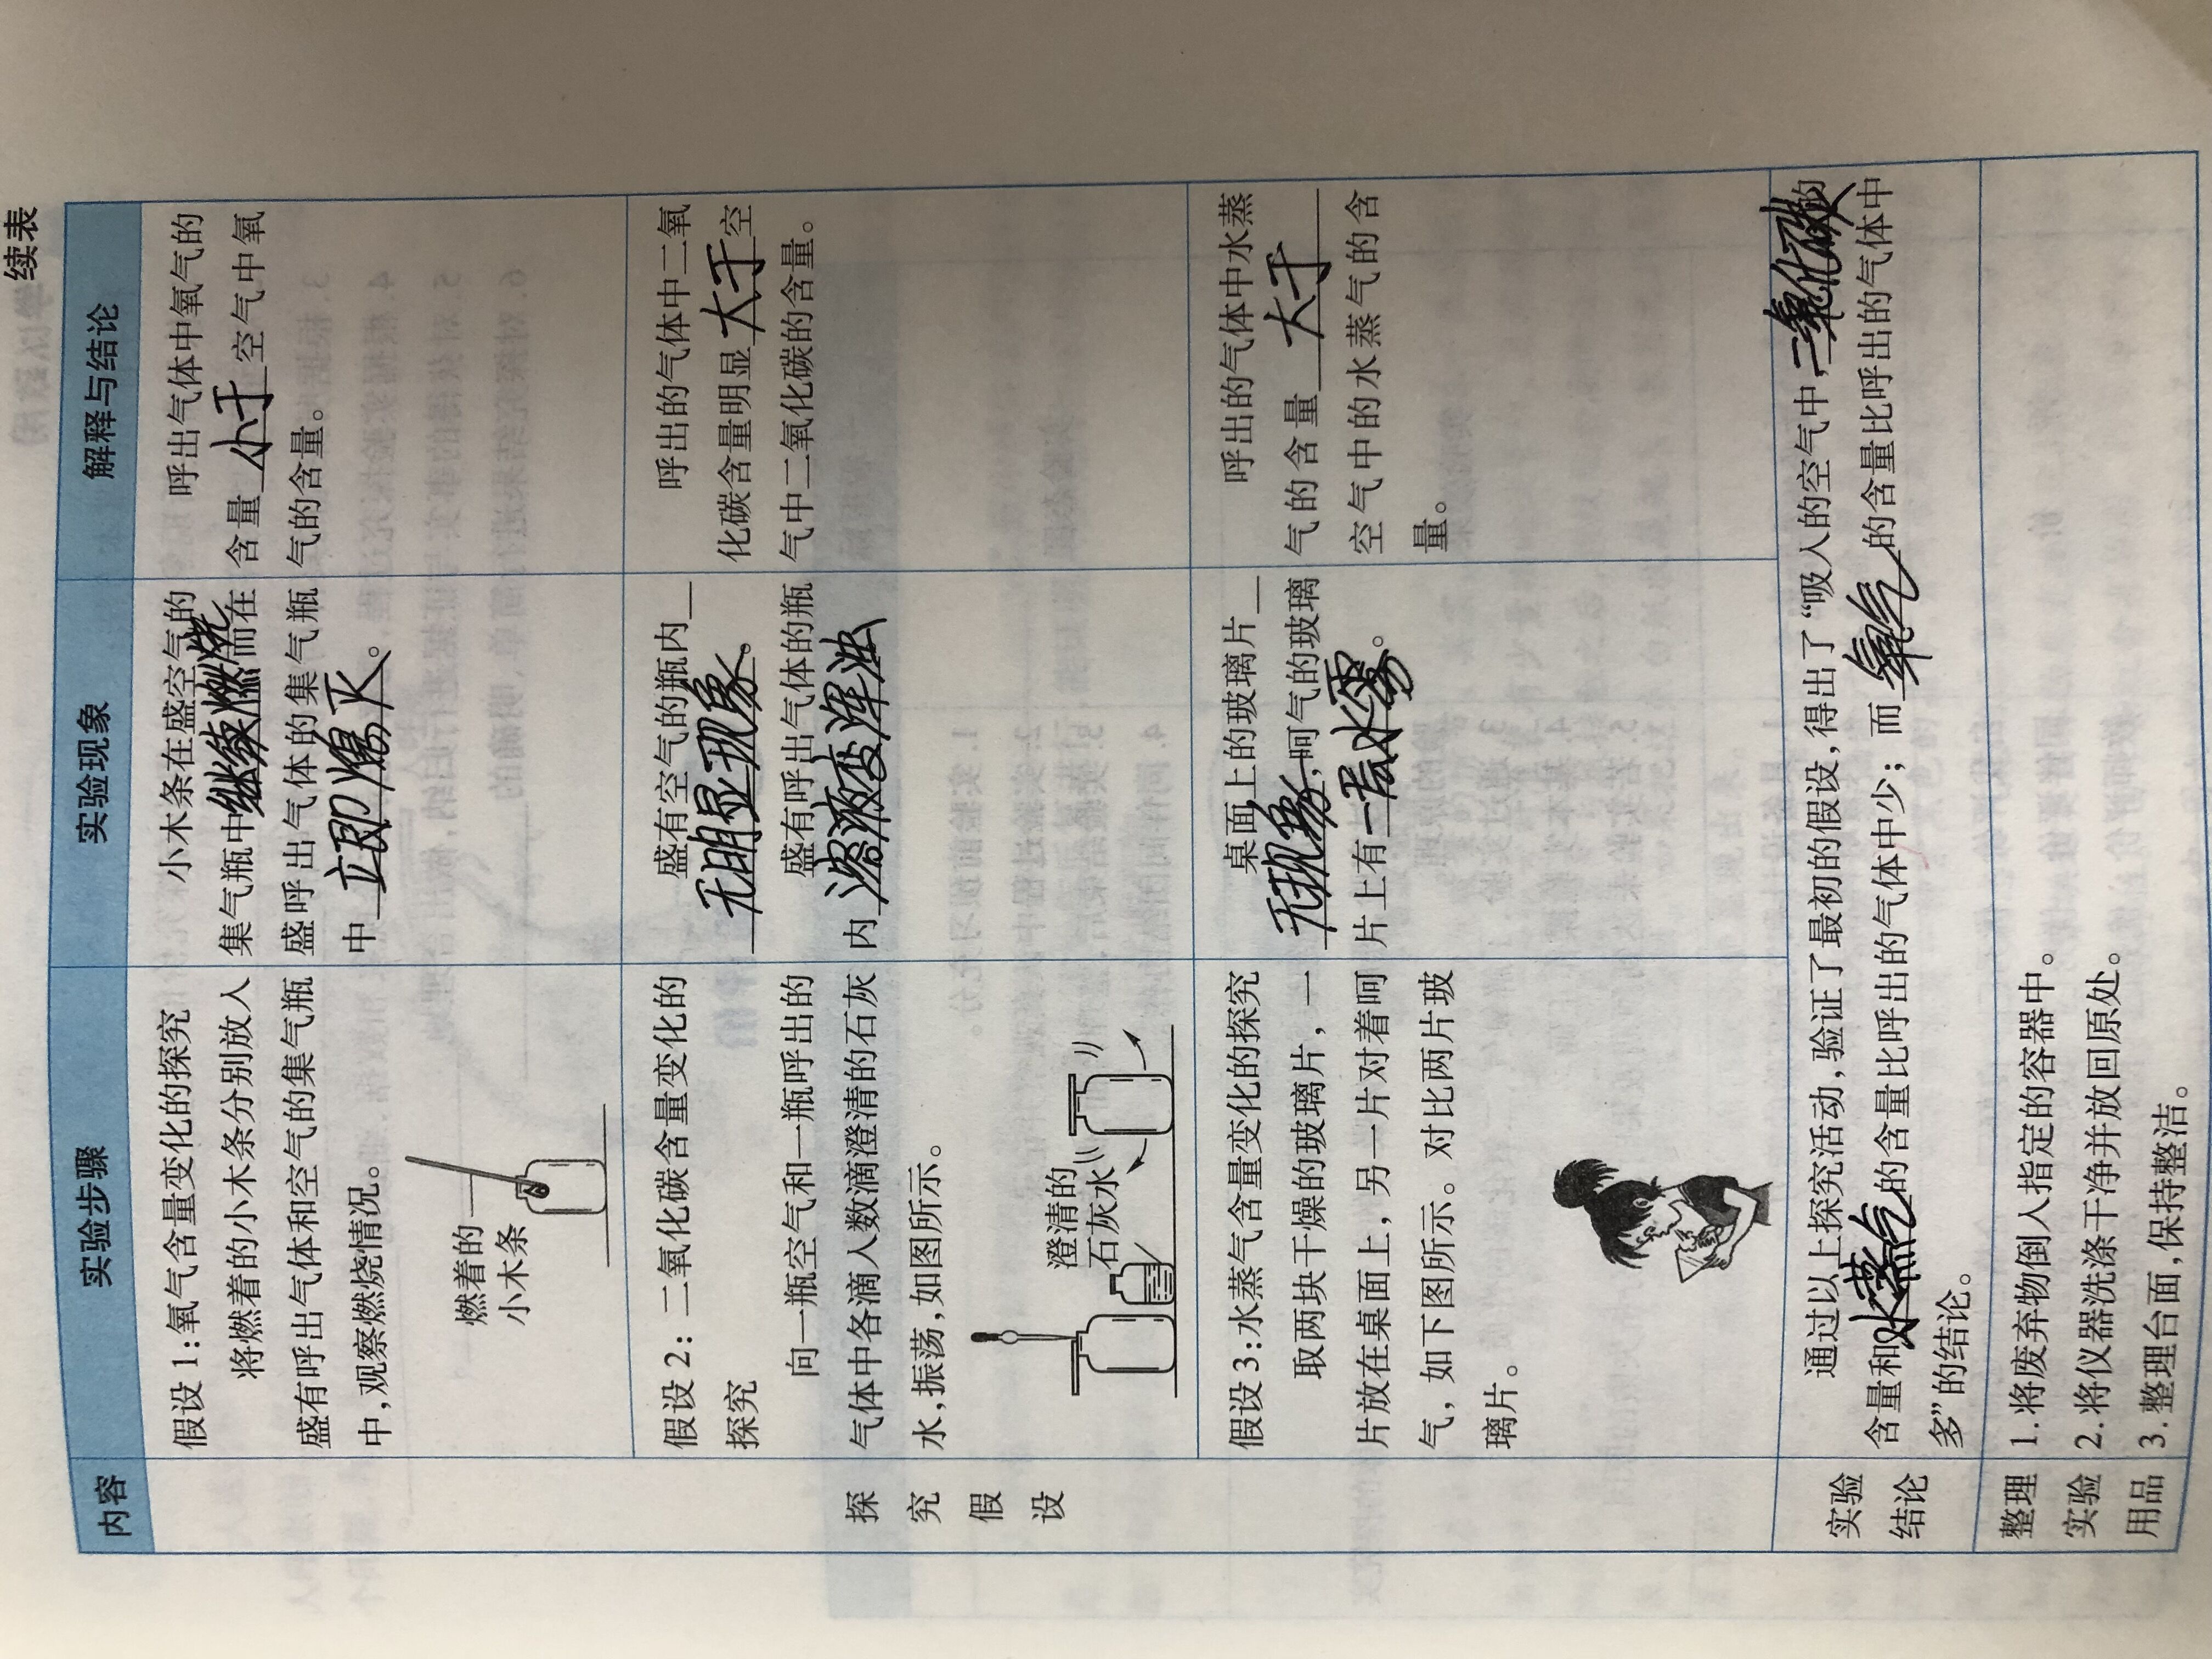 续表
内容 实验步骤 实验现象 解释与结论
探
究
假
设
假设1:氧气含量变化的探究
将燃着的小木条分别放入
盛有呼出气体和空气的集气瓶
中,观察燃烧情况。
燃着的
小木条
小木条在盛空气的
集气瓶中继续燃烧而在
盛呼出气体的集气瓶
中立即熄灭。
呼出气体中氧气的
含量小于空气中氧
气的含量。
假设2:二氧化碳含量变化的
探究
向一瓶空气和一瓶呼出的
气体中各滴入数滴澄清的石灰
水,振荡,如图所示。
澄清的
石灰水
盛有空气的瓶内
无明显现象。
盛有呼出气体的瓶
内溶液变浑浊
呼出的气体中二氧
化碳含量明显大于空
气中二氧化碳的含量。
假设3:水蒸气含量变化的探究
取两块干燥的玻璃片,一
片放在桌面上,另一片对着呵
气,如下图所示。对比两片玻
璃片。
桌面上的玻璃片
无现象,呵气的玻璃
片上有一层水雾。
呼出的气体中水蒸
气的含量大于
空气中的水蒸气的含
量。
实验
结论
通过以上探究活动,验证了最初的假设,得出了“吸入的空气中,二氧化碳的
含量和水蒸气的含量比呼出的气体中少;而氧气的含量比呼出的气体中
多”的结论。
整理
实验
用品
1.将废弃物倒入指定的容器中。
2.将仪器洗涤干净并放回原处。
3.整理台面,保持整洁。